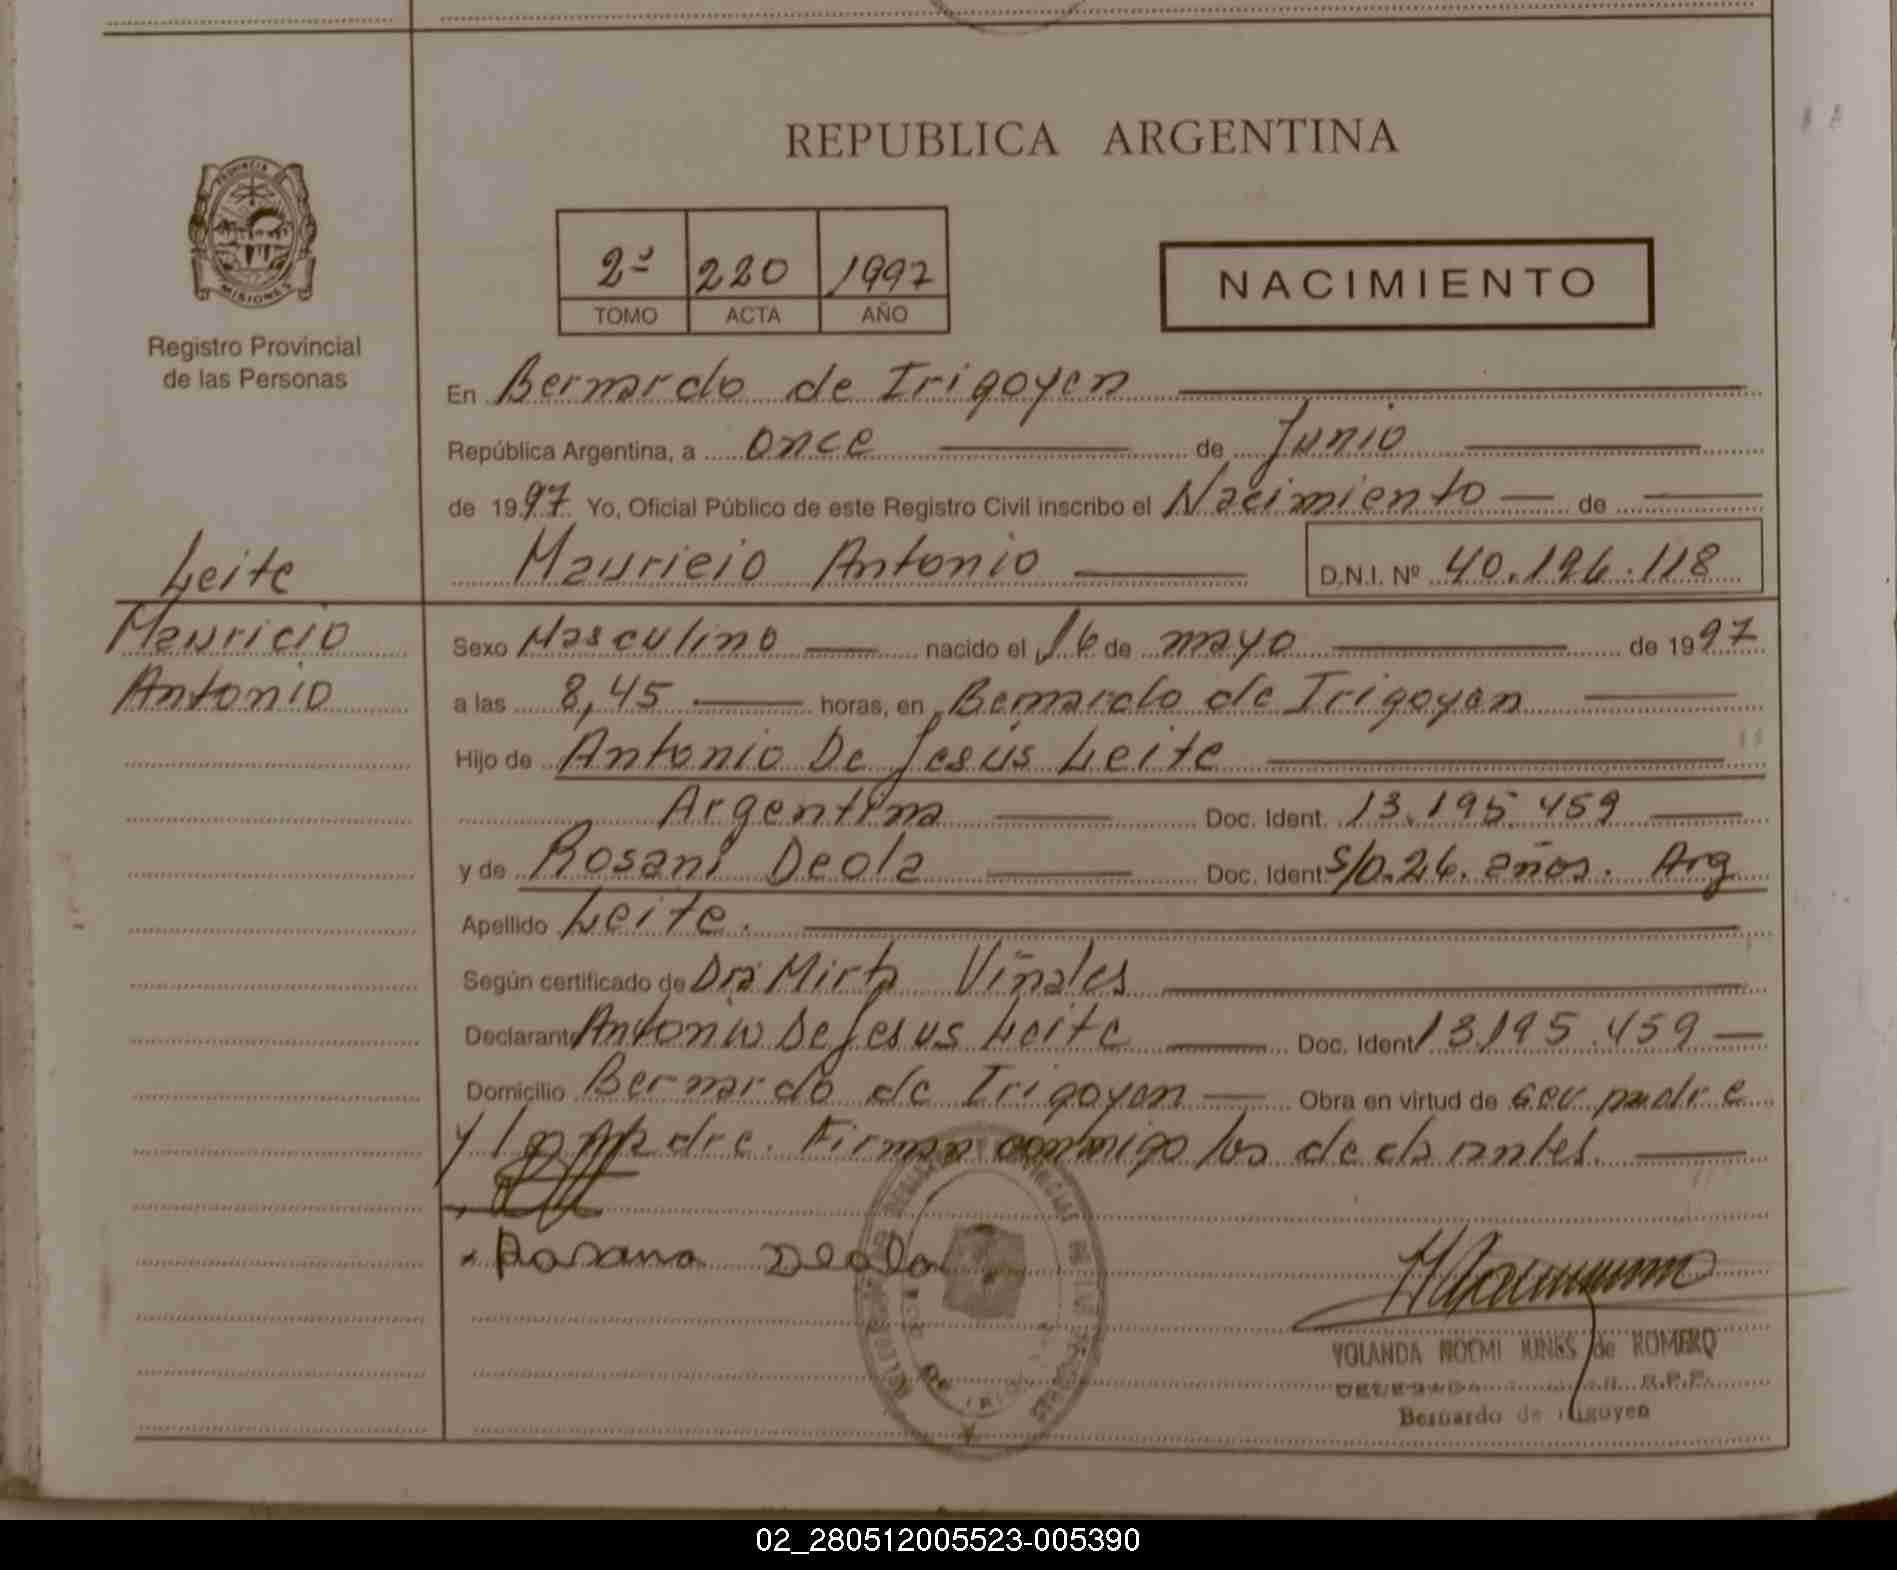 REPUBLICA ARGENTINA
PROVINCIA DE
MISIONES
Registro Provincial
de las Personas
2º 220 1997
TOMO ACTA AÑO
NACIMIENTO
En Bernardo de Irigoyen
República Argentina, a once de Junio
de 1997 Yo, Oficial Público de este Registro Civil inscribo el Nacimiento de
Mauricio Antonio D.N.I. Nº 40.196.118
Leite
Mauricio
Antonio
Sexo Masculino nacido el 16 de mayo de 1997
a las 8,45 horas, en Bernardo de Irigoyen
Hijo de Antonio De Jesús Leite
Argentina Doc. Ident. 13.195.459
y de Rosani Deola Doc. Ident. S/D. 26. años. Arg
Apellido Leite.
Según certificado de Dra Mirta Viñales
Declarante Antonio De Jesus Leite Doc. Ident 13195.459
Domicilio Bernardo de Irigoyen Obra en virtud de ser padre
y la madre. Firman conmigo los declarantes.
Rosana Deola
YOLANDA NOEMI KUNGS de ROMERO
DELEGADA R.P.P.
Bernardo de Irigoyen
02_280512005523-005390